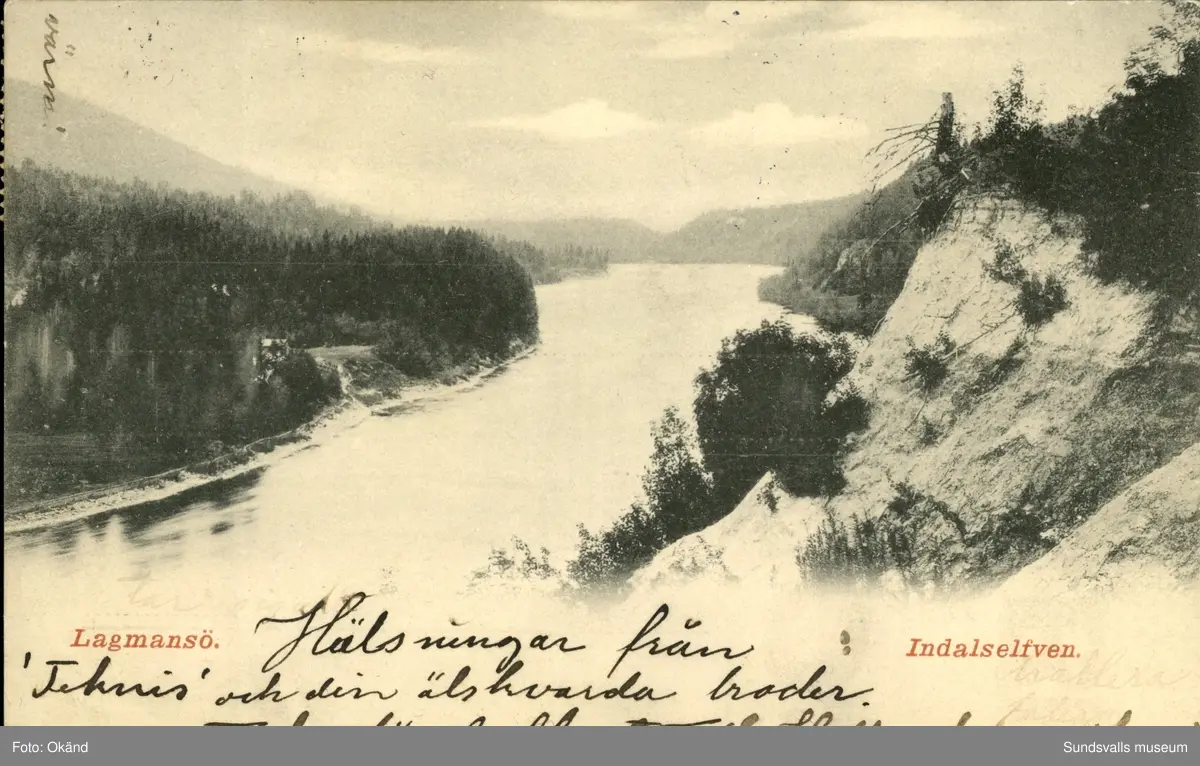 värm
Lagmansö.
Indalselfven.
Hälsningar från
'Teknis' och din älskvarda broder.
Foto: Okänd
Sundsvalls museum